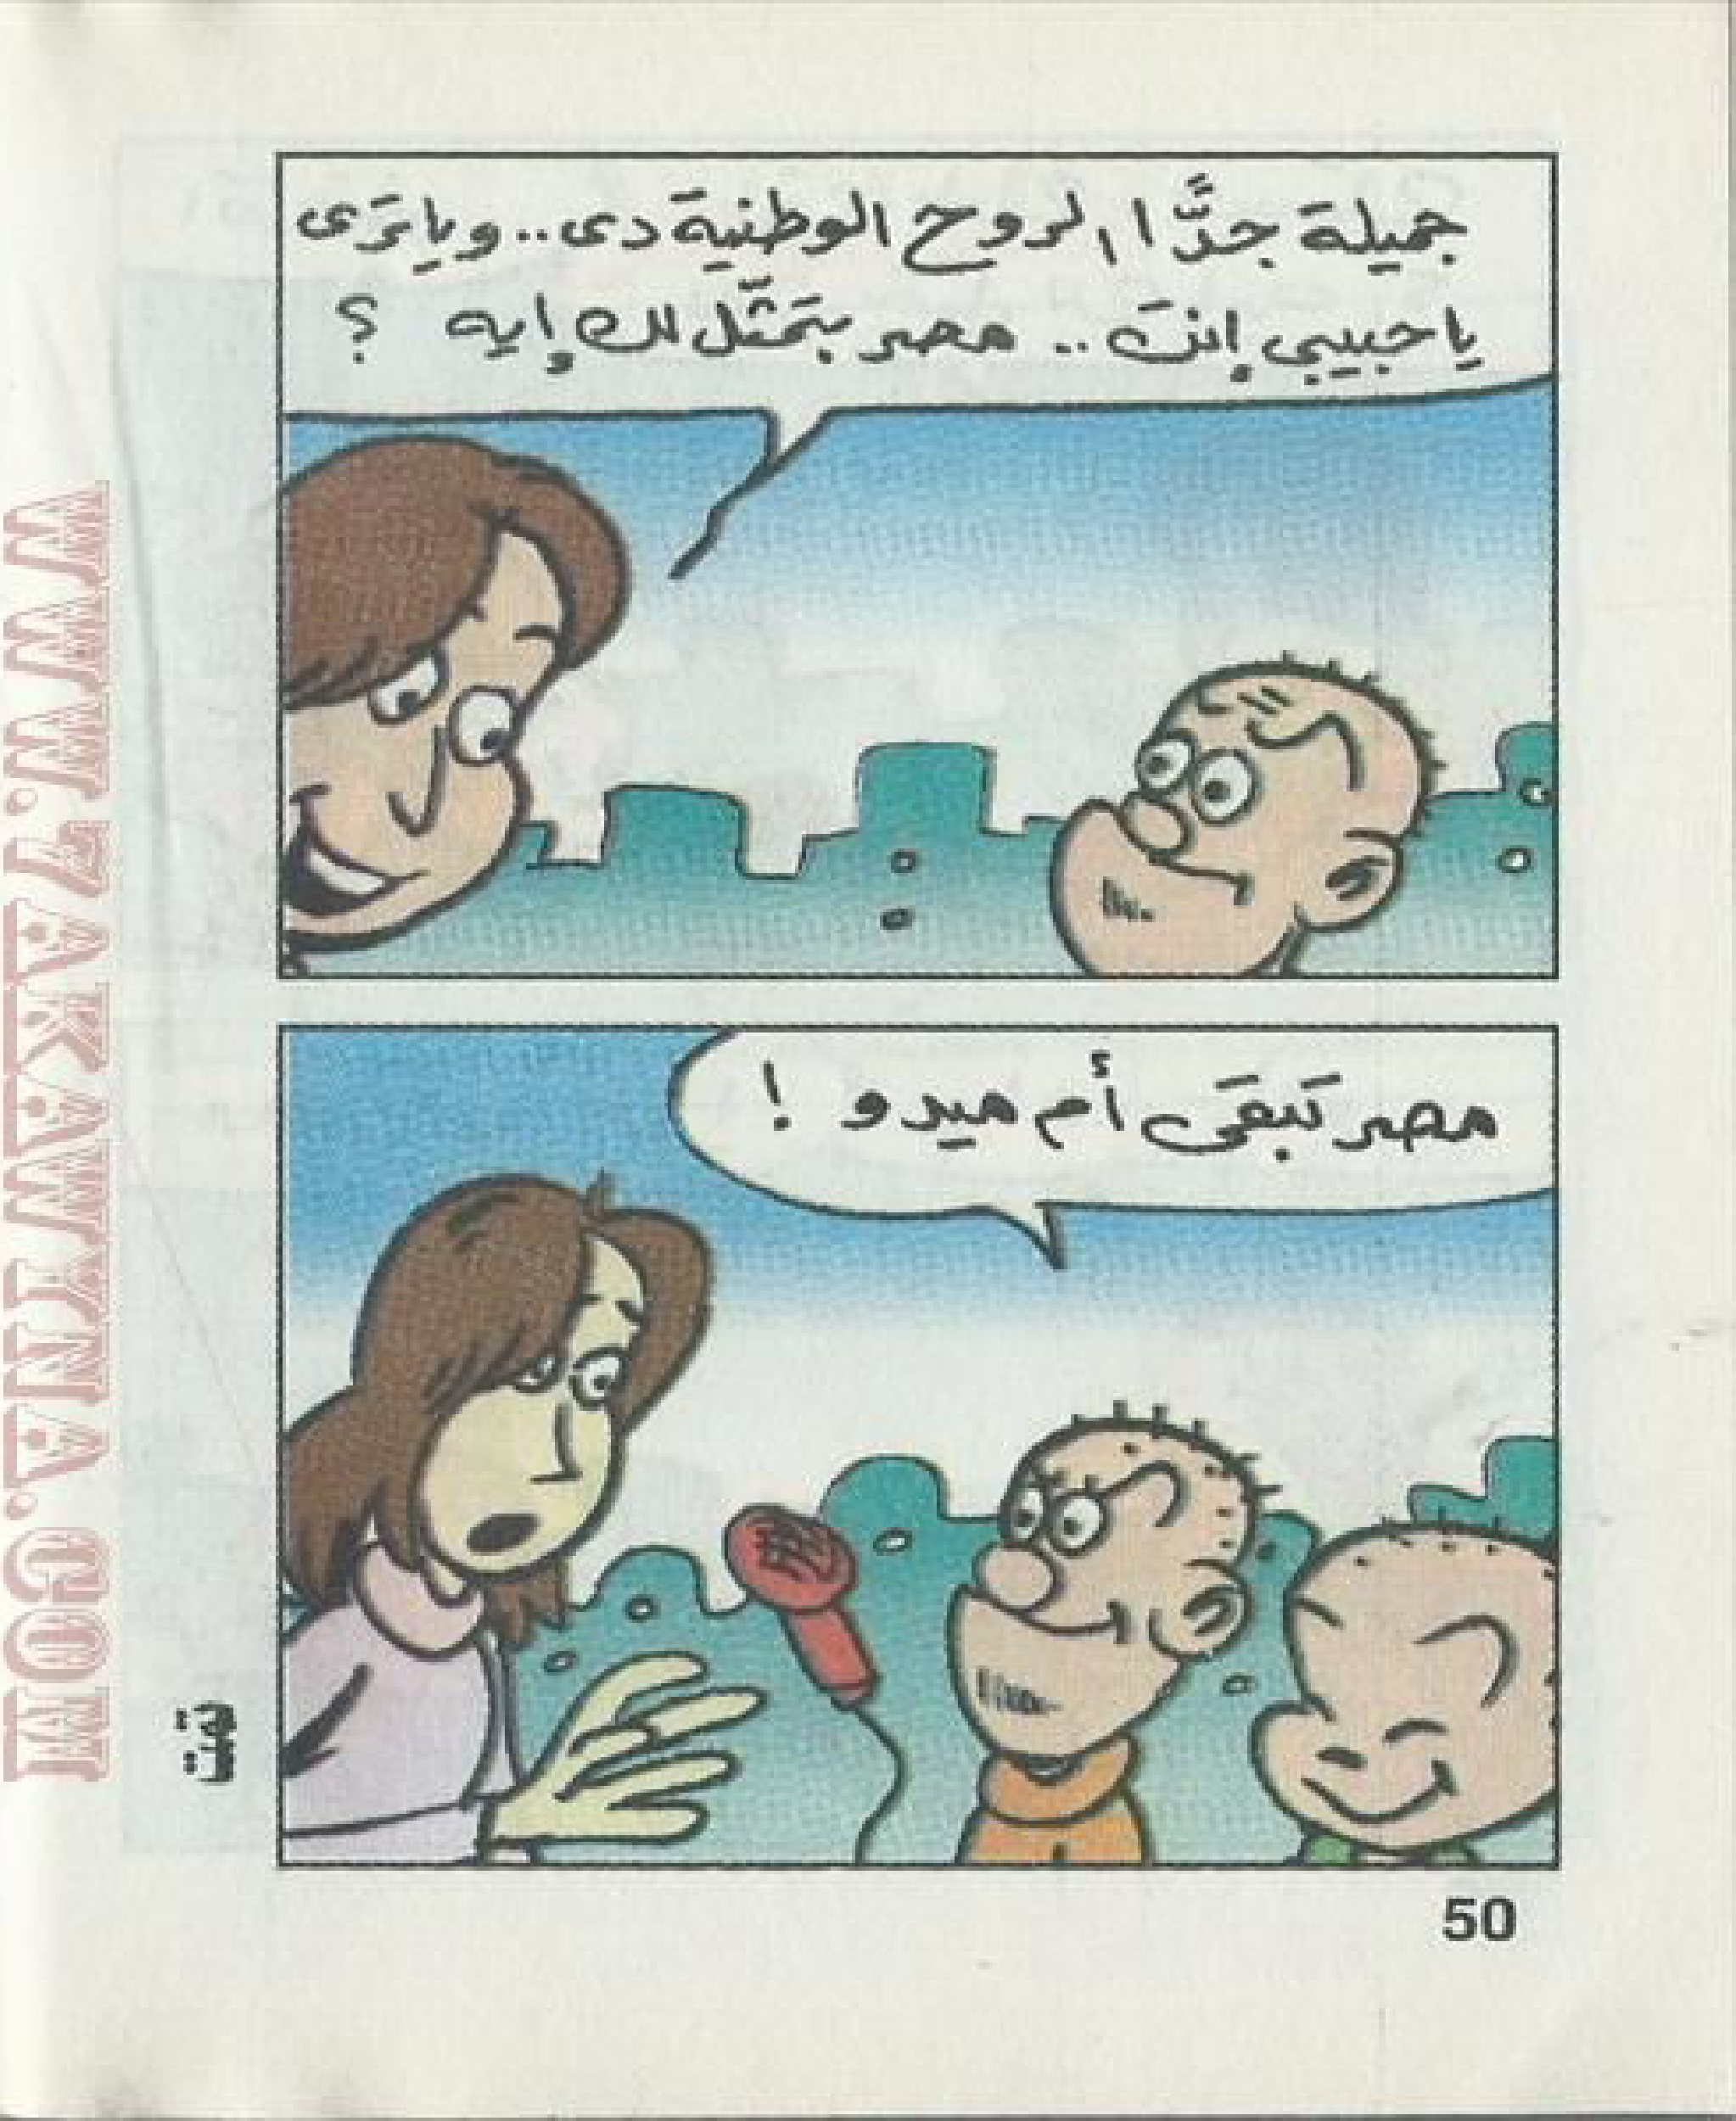 جميلة جدًّا الروح الوطنية دى.. ويا تَرَى
يا حبيبى إنتَ .. مصر بتمَثّل لك إيه ؟
مصر تَبقَى أم ميدو !
تمت
50
WWW.7AKAWYNA.COM